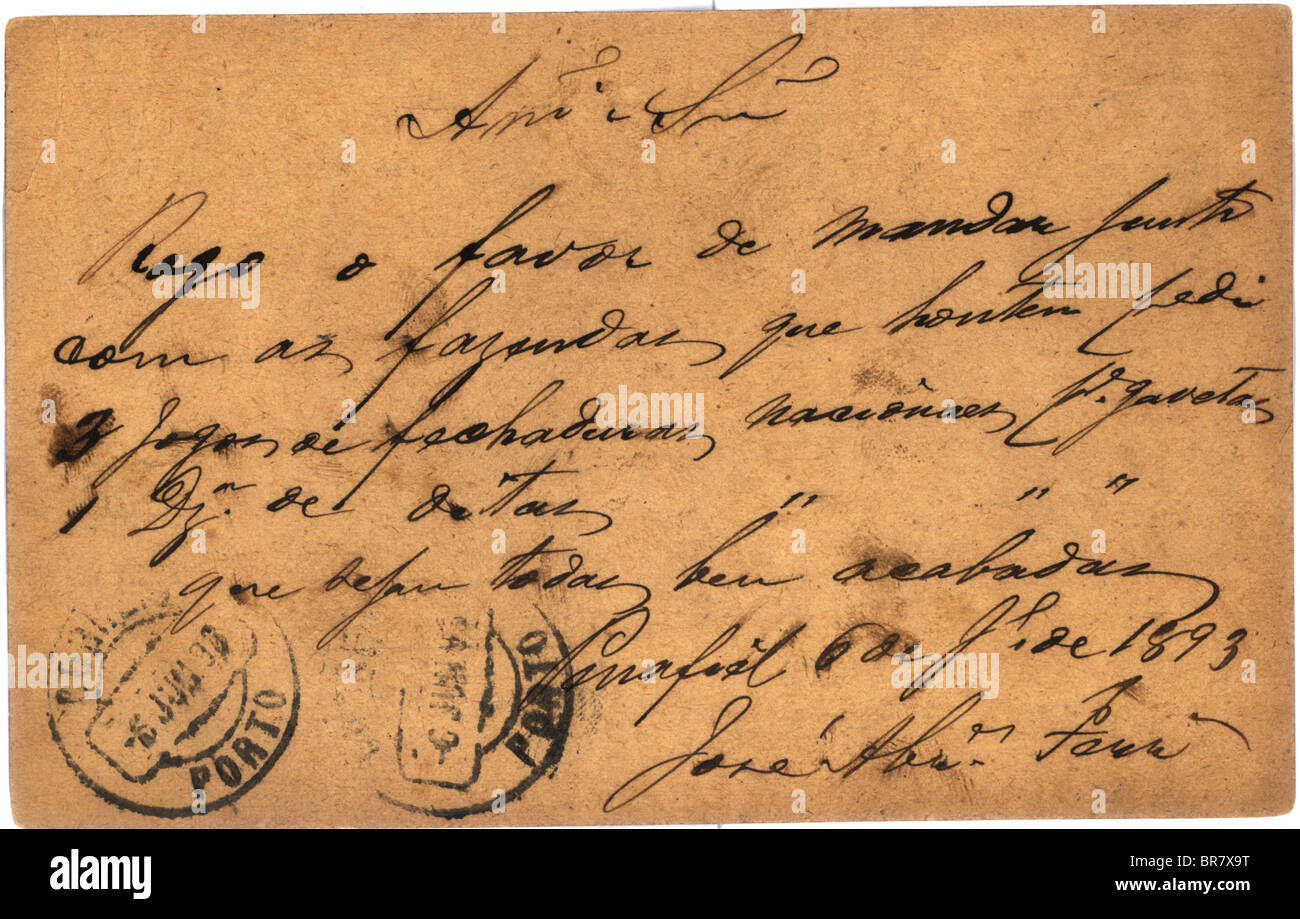 Amº e Snr
Rogo o favor de mandar junto
com as fazendas que hontem pedi
3 Jogos de fechaduras nacionaes pª gavetas
1 Dzª de ditas " " "
que sejam todas bem acabadas
Penafiel 6 de Jº de 1893
José Abr.es
PORTO
PORTO
alamy
Image ID: BR7X9T
www.alamy.com